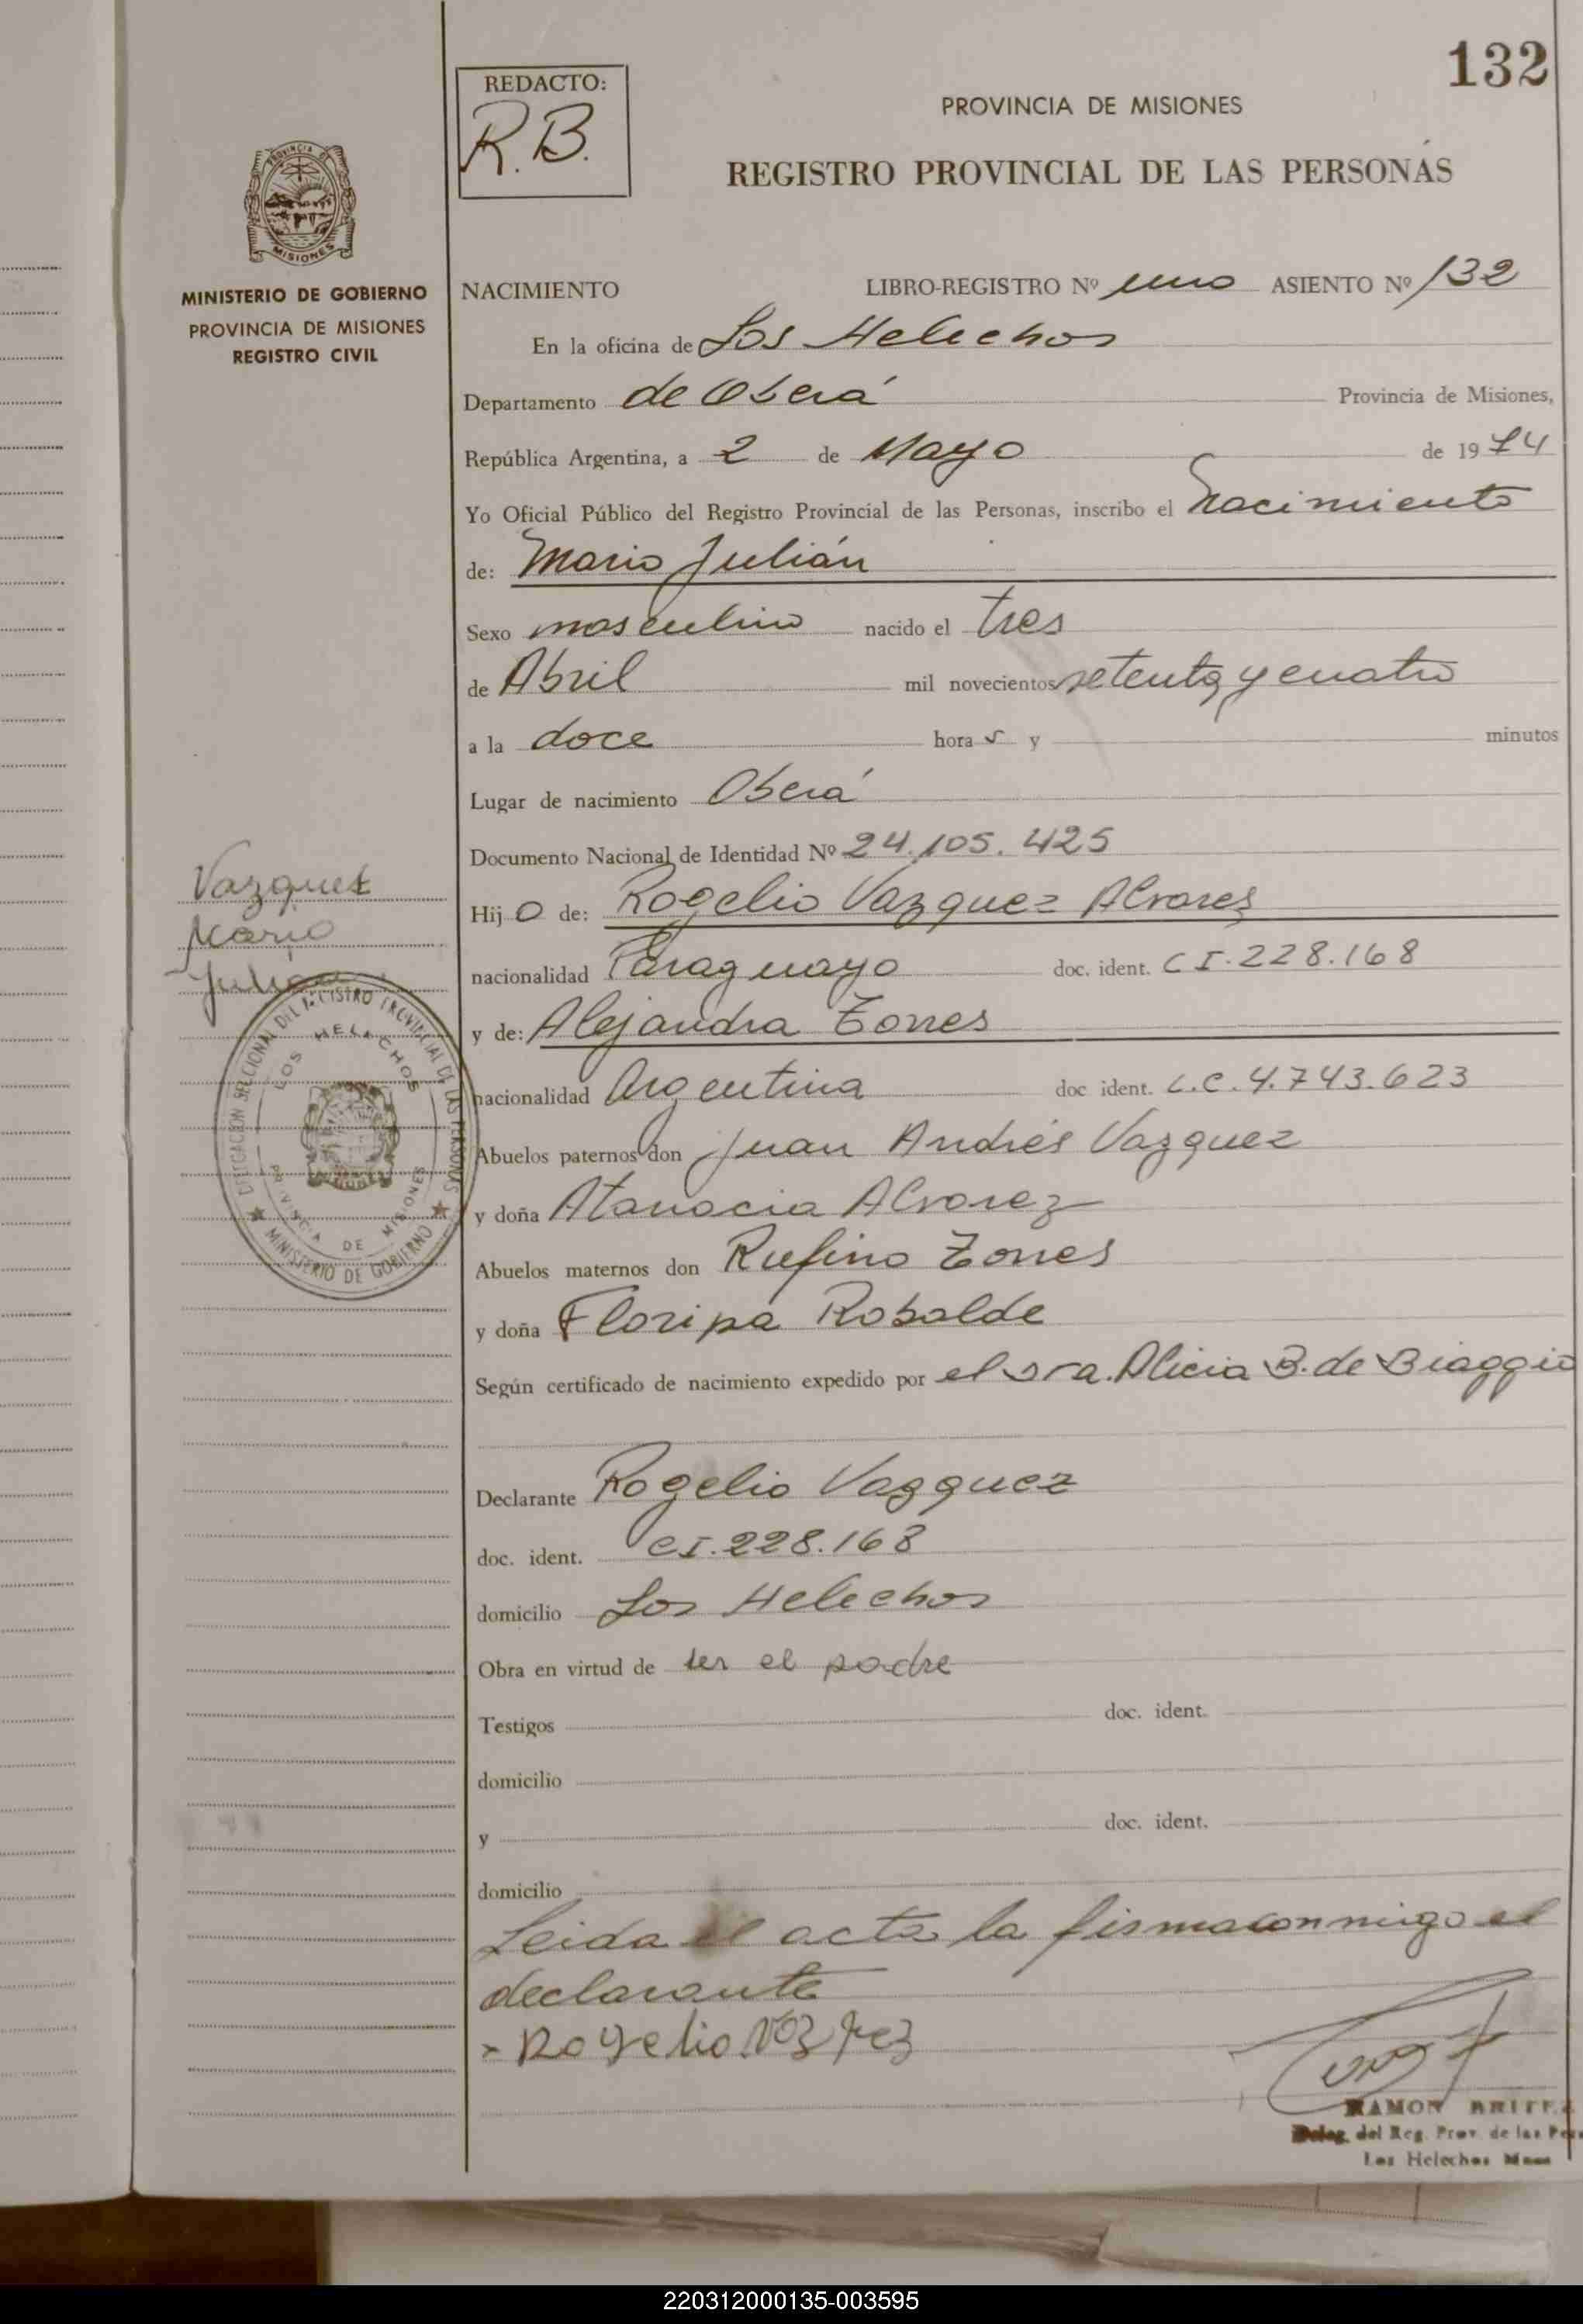 132
REDACTO:
R.B.
PROVINCIA DE MISIONES
REGISTRO PROVINCIAL DE LAS PERSONAS
PROVINCIA DE
MISIONES
MINISTERIO DE GOBIERNO
PROVINCIA DE MISIONES
REGISTRO CIVIL
NACIMIENTO LIBRO-REGISTRO Nº uno ASIENTO Nº 132
En la oficina de Los Helechos
Departamento de Oberá Provincia de Misiones,
República Argentina, a 2 de Mayo de 1974
Yo Oficial Público del Registro Provincial de las Personas, inscribo el Nacimiento
de: Mario Julián
Sexo masculino nacido el tres
de Abril mil novecientos setenta y cuatro
a la doce hora s y minutos
Lugar de nacimiento Oberá
Documento Nacional de Identidad Nº 24.105.425
Hij o de: Rogelio Vazquez Alvarez
nacionalidad Paraguayo doc. ident. C I. 228.168
y de: Alejandra Torres
nacionalidad Argentina doc ident. L.C. 4.743.623
Abuelos paternos don Juan Andrés Vazquez
y doña Atanacia Alvarez
Abuelos maternos don Rufino Torres
y doña Floripa Robalde
Según certificado de nacimiento expedido por el sra. Alicia B. de Biaggio
Declarante Rogelio Vazquez
doc. ident. CI. 228.168
domicilio Los Helechos
Obra en virtud de ser el padre
Testigos doc. ident.
domicilio
y doc. ident.
domicilio
Leida el acta la firma conmigo el
declarante
Rogelio Vazquez
Vazquez
Mario
Julian
DELEGACION SECCIONAL DEL REGISTRO PROVINCIAL DE LAS PERSONAS
LOS HELECHOS
PROVINCIA DE MISIONES
MINISTERIO DE GOBIERNO
RAMON BRITEZ
Deleg. del Reg. Prov. de las Per
Los Helechos Mnes
220312000135-003595